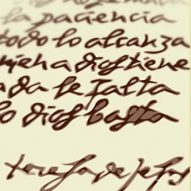 la paciencia
todo lo alcanza
quien a dios tiene
nada le falta
lo dios basta
teresa de jesus